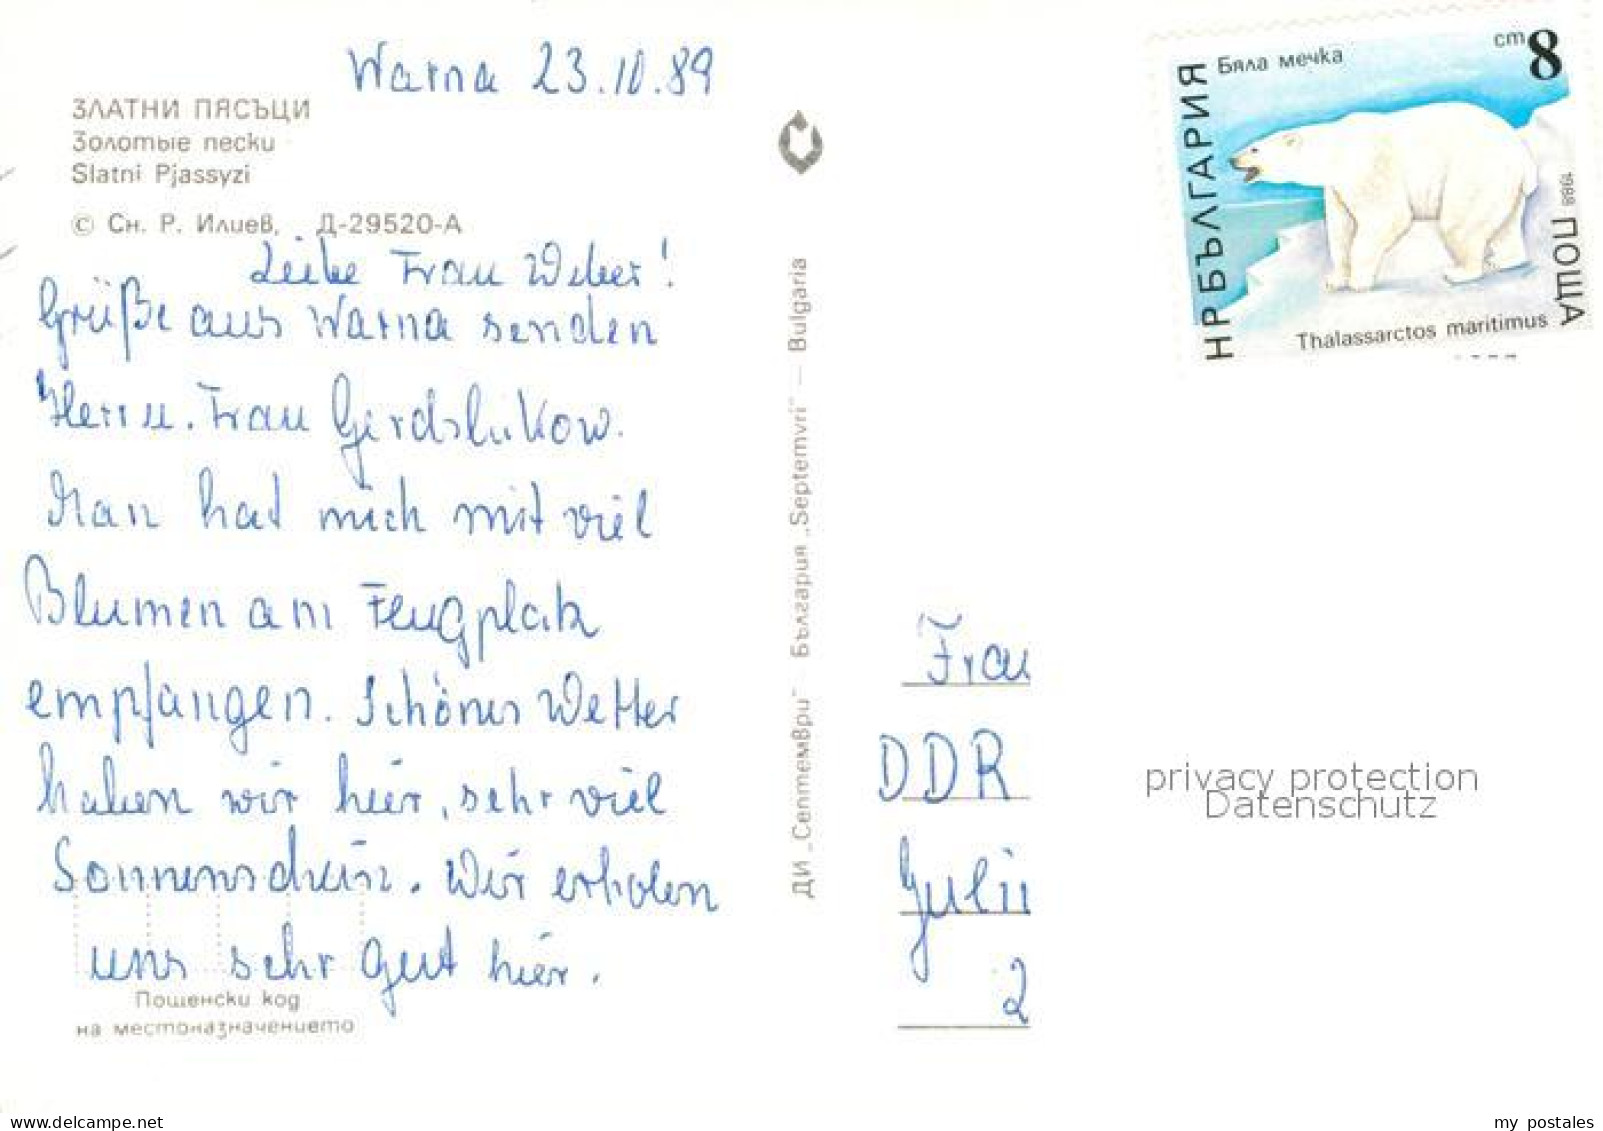 Warna 23.10.89
ЗЛАТНИ ПЯСЪЦИ
Золотые пески
Slatni Pjassyzi
© Сн. Р. Илиев, Д-29520-А
Liebe Frau Weber!
Grüße aus Warna senden
Herr u. Frau
Man hat mich mit viel
Blumen am Flugplatz
empfangen. Schönes Wetter
haben wir hier, sehr viel
Sonnenschein. Wir erholen
uns sehr gut hier.
Пощенски код
на местоназначението
ДИ „Септември" България „Septemvri" — Bulgaria
Бяла мечка
cm 8
НР БЪЛГАРИЯ
1988 ПОЩА
Thalassarctos maritimus
Frau
DDR
2
privacy protection
Datenschutz
www.delcampe.net
my_postales